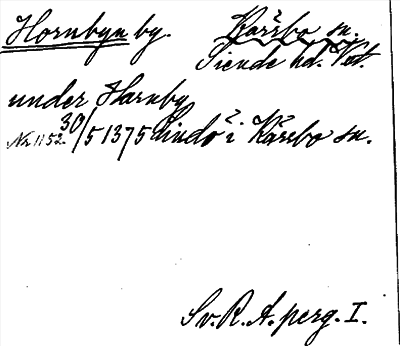 Hornbyn by. Kårsbo sn.
Siende hd. Vstl.
under Harnby
Nr. 1152. 30/5 1375 Lindö i Kårsbo sn.
Sv. R. A. perg. I.